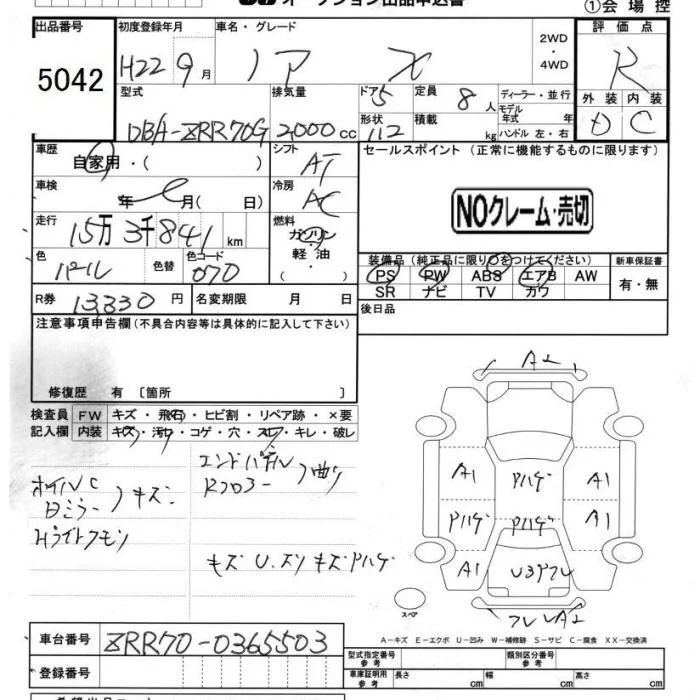 オークション出品申込書
①会場控
出品番号
5042
初度登録年月
H22 9月
車名・グレード
ノア X
2WD・4WD
評価点
R
外装 内装
D C
型式
DBA-ZRR70G
排気量
2000cc
ドア 5
形状 112
定員 8人
積載 kg
ディーラー・並行
モデル
年式 年
ハンドル 左・右
車歴
自家用・( )
シフト
AT
セールスポイント (正常に機能するものに限ります)
車検
年 月( 日)
冷房
AC
NOクレーム・売切
走行
15万3千841km
燃料
ガソリン
軽油
( )
色
パール
色替
色コード
070
装備品 (純正品に限り○をつけてください)
PS PW ABS エアB AW
SR ナビ TV カワ
新車保証書
有・無
R券 13,830円
名変期限 月 日
後日品
注意事項申告欄 (不具合内容等は具体的に記入して下さい)
修復歴 有 〔箇所 〕
検査員記入欄
FW キズ・飛石・ヒビ割・リペア跡・×要
内装 キズ・汚れ・コゲ・穴・スレ・キレ・破レ
エンドパネル
Rフロアー 曲り
キズ
Hライトクモリ
キズ U.スリキズ Pハゲ
A2
A1 Pハゲ A1
Pハゲ Pハゲ A1
A1
A2
スペア
A－キズ E－エクボ U－凹み W－補修跡 S－サビ C－腐食 XX－交換済
車台番号
ZRR70-0365503
登録番号
型式指定番号 参考
類別区分番号 参考
車庫証明用 参考
長さ cm
幅 cm
高さ cm